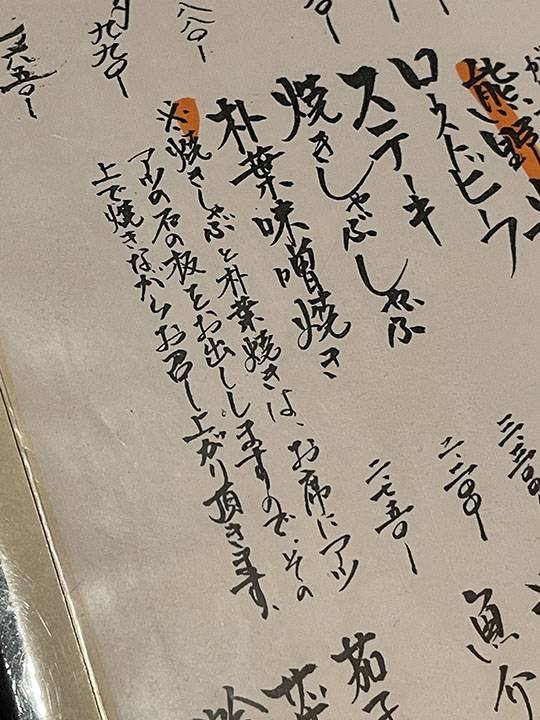 熊野牛
ローストビーフ
三、三〇〇ー
ステーキ
二、二〇〇ー
焼きしゃぶしゃぶ
二、七五〇ー
朴葉味噌焼き
※焼きしゃぶと朴葉焼きは、お席にアツ
アツの石の板をお出ししますので、その
上で焼きながらお召し上がり頂きます、
八八〇ー
九九〇ー
魚介
茄子